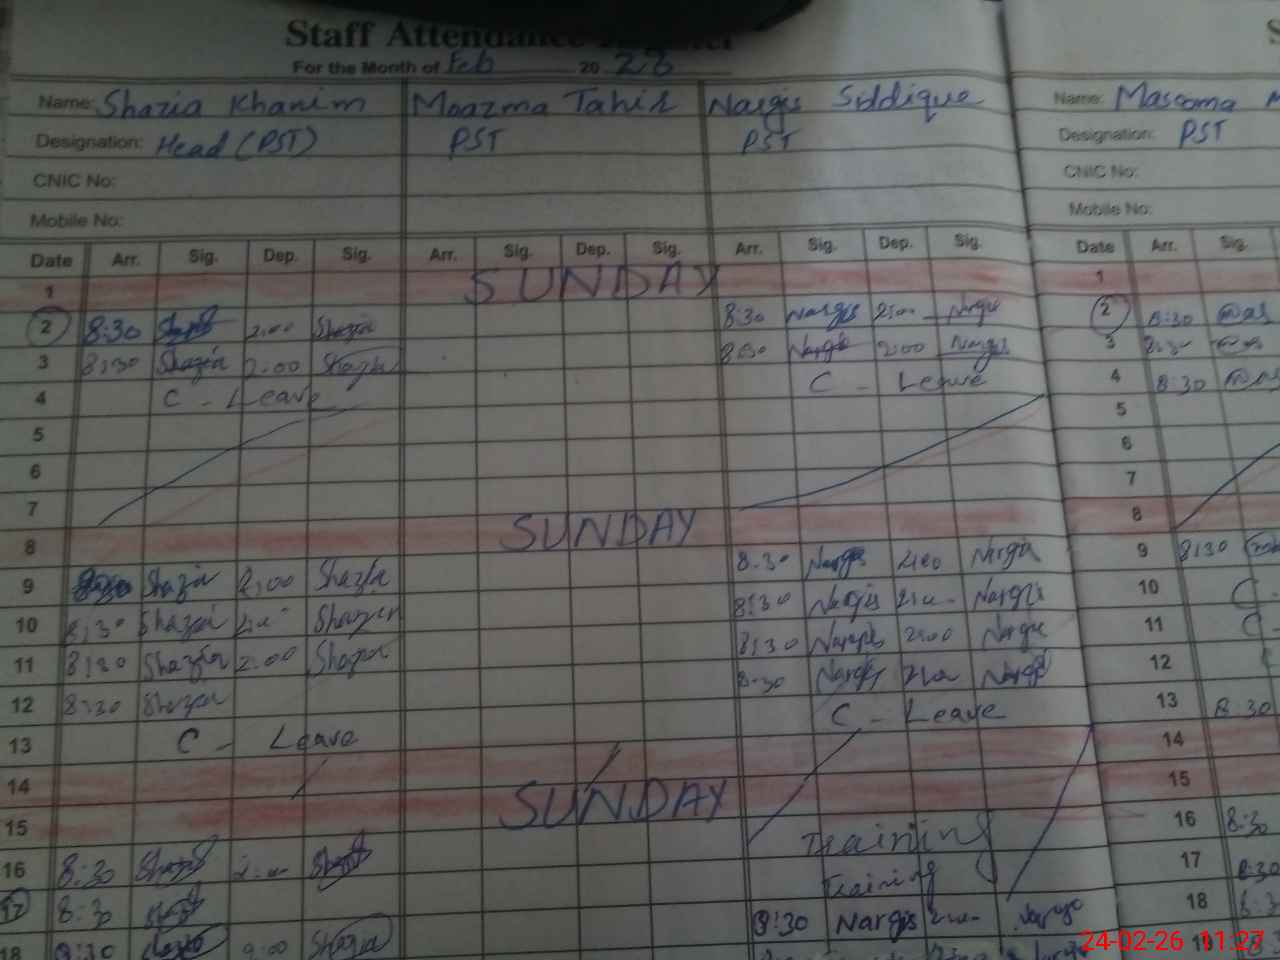 Staff Attendance
For the Month of Feb 20 26
Name: Shazia Khanim Moazma Tahir Nargis Siddique Name: Masooma
Designation: Head (PST) PST PST Designation: PST
CNIC No: CNIC No:
Mobile No: Mobile No:
Date Arr. Sig. Dep. Sig. Arr. Sig. Dep. Sig. Arr. Sig. Dep. Sig. Date Arr. Sig.
1 SUNDAY 1
2 8:30 2:00 Shazia 8:30 Nargis 2:00 Nargis 2 8:30
3 8:30 Shazia 2:00 Shazia 8:30 Nargis 2:00 Nargis 3 8:30
4 C - Leave C - Leave 4 8:30
5 5
6 6
7 7
8 SUNDAY 8
9 Shazia 2:00 Shazia 8:30 Nargis 2:00 Nargis 9 8:30
10 8:30 Shazia 2:00 Shazia 8:30 Nargis 2:00 Nargis 10 C -
11 8:30 Shazia 2:00 Shazia 8:30 Nargis 2:00 Nargis 11 C -
12 8:30 Shazia 8:30 Nargis 2:00 Nargis 12
13 C - Leave C - Leave 13 8:30
14 14
15 SUNDAY 15
16 8:30 2:00 Training 16 8:30
17 8:30 Training 17 8:30
18 8:30 2:00 Shazia 8:30 Nargis 2:00 Nargis 18 8:3
19
24-02-26 11:27